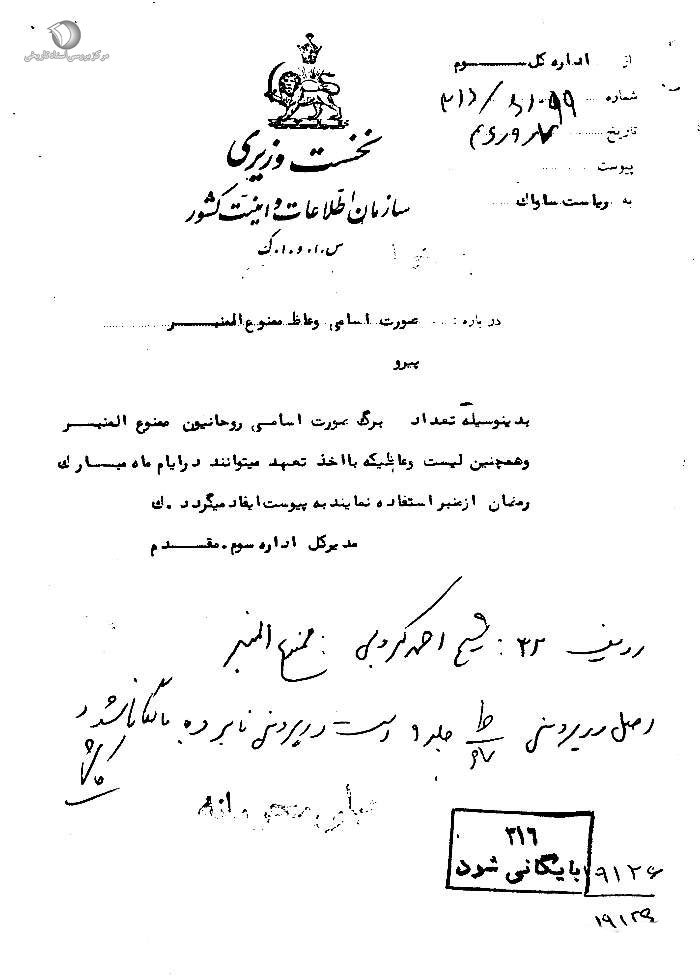 مرکز بررسی اسناد تاریخی
از اداره کل سوم
شماره ۳۱۲/
تاریخ
پیوست
به ریاست ساواک
نخست وزیری
سازمان اطلاعات و امنیت کشور
س.ا.و.ا.ک
درباره : صورت اسامی وعاظ ممنوع المنبر
پیرو
بدینوسیله تعداد برگ صورت اسامی روحانیون ممنوع المنبر
وهمچنین لیست وعاظیکه با اخذ تعهد میتوانند در ایام ماه مبارک
رمضان از منبر استفاده نمایند به پیوست ایفاد میگردد . ک
مدیرکل اداره سوم . مقدم
ردیف ۳۲ : شیخ احمد کروبی : ممنوع المنبر
اصل در پرونده جلد ۹ است در پرونده نامبرده بایگانی شود
خیلی محرمانه
۳۱۶
بایگانی شود
۱۹۱۲۶
۱۹۱۲۶